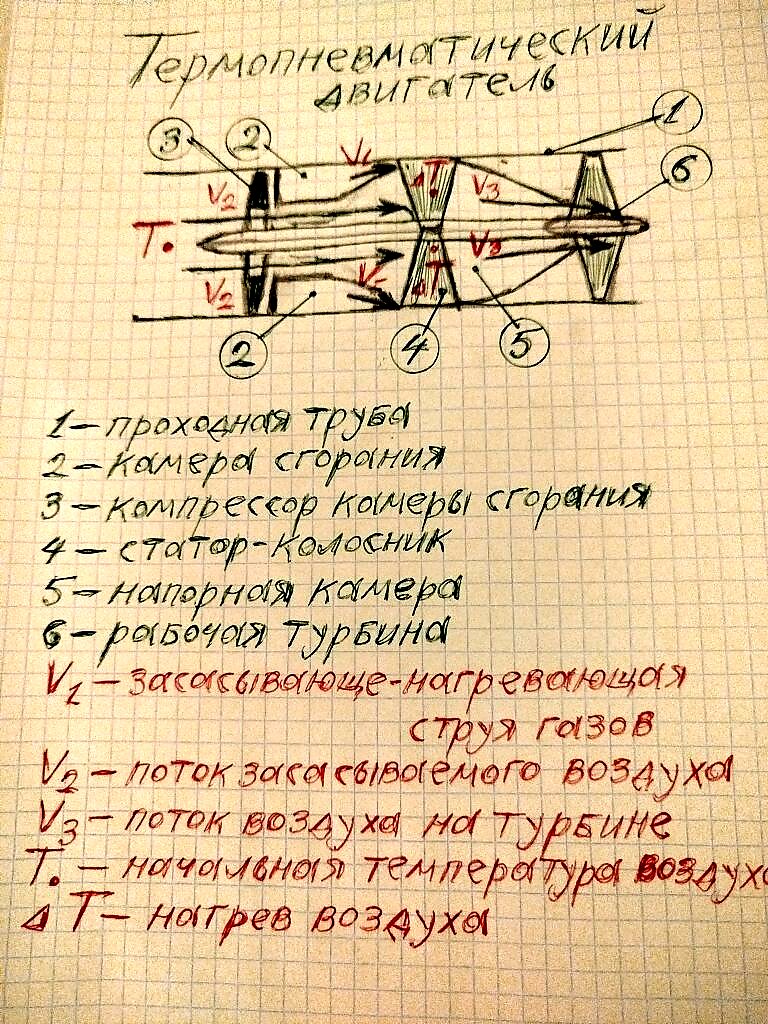 Термопневматический
двигатель
3 2 V₁ ΔT 1
V₂ V₃ 6
T.
V₃
V₂ V₁ ΔT
2 4 5
1 – проходная труба
2 – камера сгорания
3 – компрессор камеры сгорания
4 – статор-колосник
5 – напорная камера
6 – рабочая турбина
V₁ – засасывающе-нагревающая
струя газов
V₂ – поток засасываемого воздуха
V₃ – поток воздуха на турбине
T. – начальная температура воздуха
ΔT – нагрев воздуха